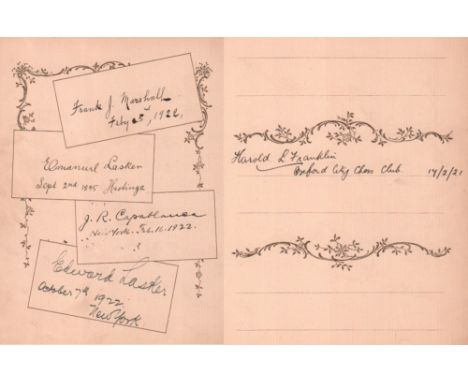 Frank J. Marshall
Feby 3d, 1922.
Emanuel Lasker
Sept 2nd 1895 Hastings
J. R. Capablanca
New York. Feb. 11. 1922.
Edward Lasker
October 7th 1922
New York.
Harold L Franklin
Oxford City Chess Club 14/2/21